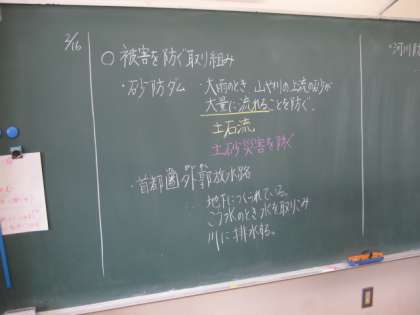 2/16
○ 被害を防ぐ取り組み
・砂防ダム ・大雨のとき、山や川の上流の砂が
大量に流れることを防ぐ。
土石流
土砂災害を防ぐ
・首都圏外郭放水路
地下につくられている。
こう水のとき水を取りこみ
川に排水する。
・河川